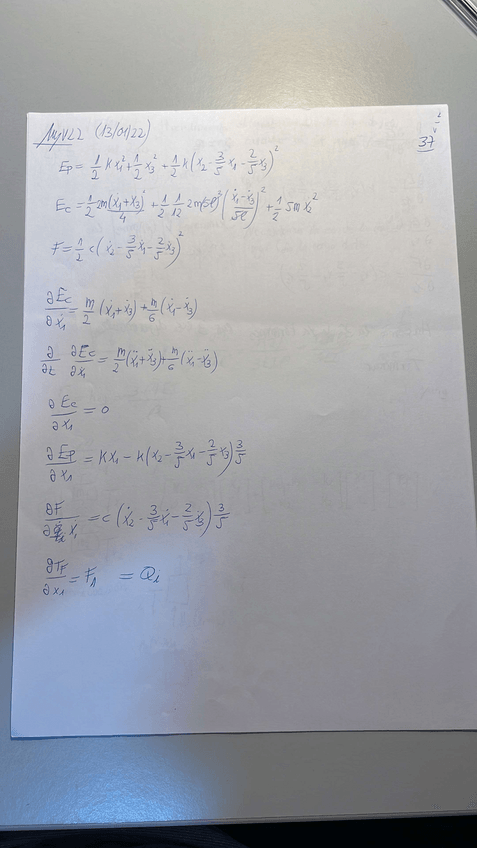 (13/01/22)
37
Ep = 1/2 k x₁² + 1/2 x₃² + 1/2 k (x₂ - 3/5 x₁ - 2/5 x₃)²
Ec = 1/2 2m (ẋ₁ + ẋ₃)²/4 + 1/2 1/12 2m(5l)² ((ẋ₁ - ẋ₃)/5l)² + 1/2 5m ẋ₂²
F = 1/2 c (ẋ₂ - 3/5 ẋ₁ - 2/5 ẋ₃)²
∂Ec/∂ẋ₁ = m/2 (ẋ₁ + ẋ₃) + m/6 (ẋ₁ - ẋ₃)
∂/∂t ∂Ec/∂ẋ₁ = m/2 (ẍ₁ + ẍ₃) + m/6 (ẍ₁ - ẍ₃)
∂Ec/∂x₁ = 0
∂Ep/∂x₁ = k x₁ - k (x₂ - 3/5 x₁ - 2/5 x₃) 3/5
∂F/∂ẋ₁ = c (ẋ₂ - 3/5 ẋ₁ - 2/5 ẋ₃) 3/5
∂TF/∂x₁ = F₁ = Q₁